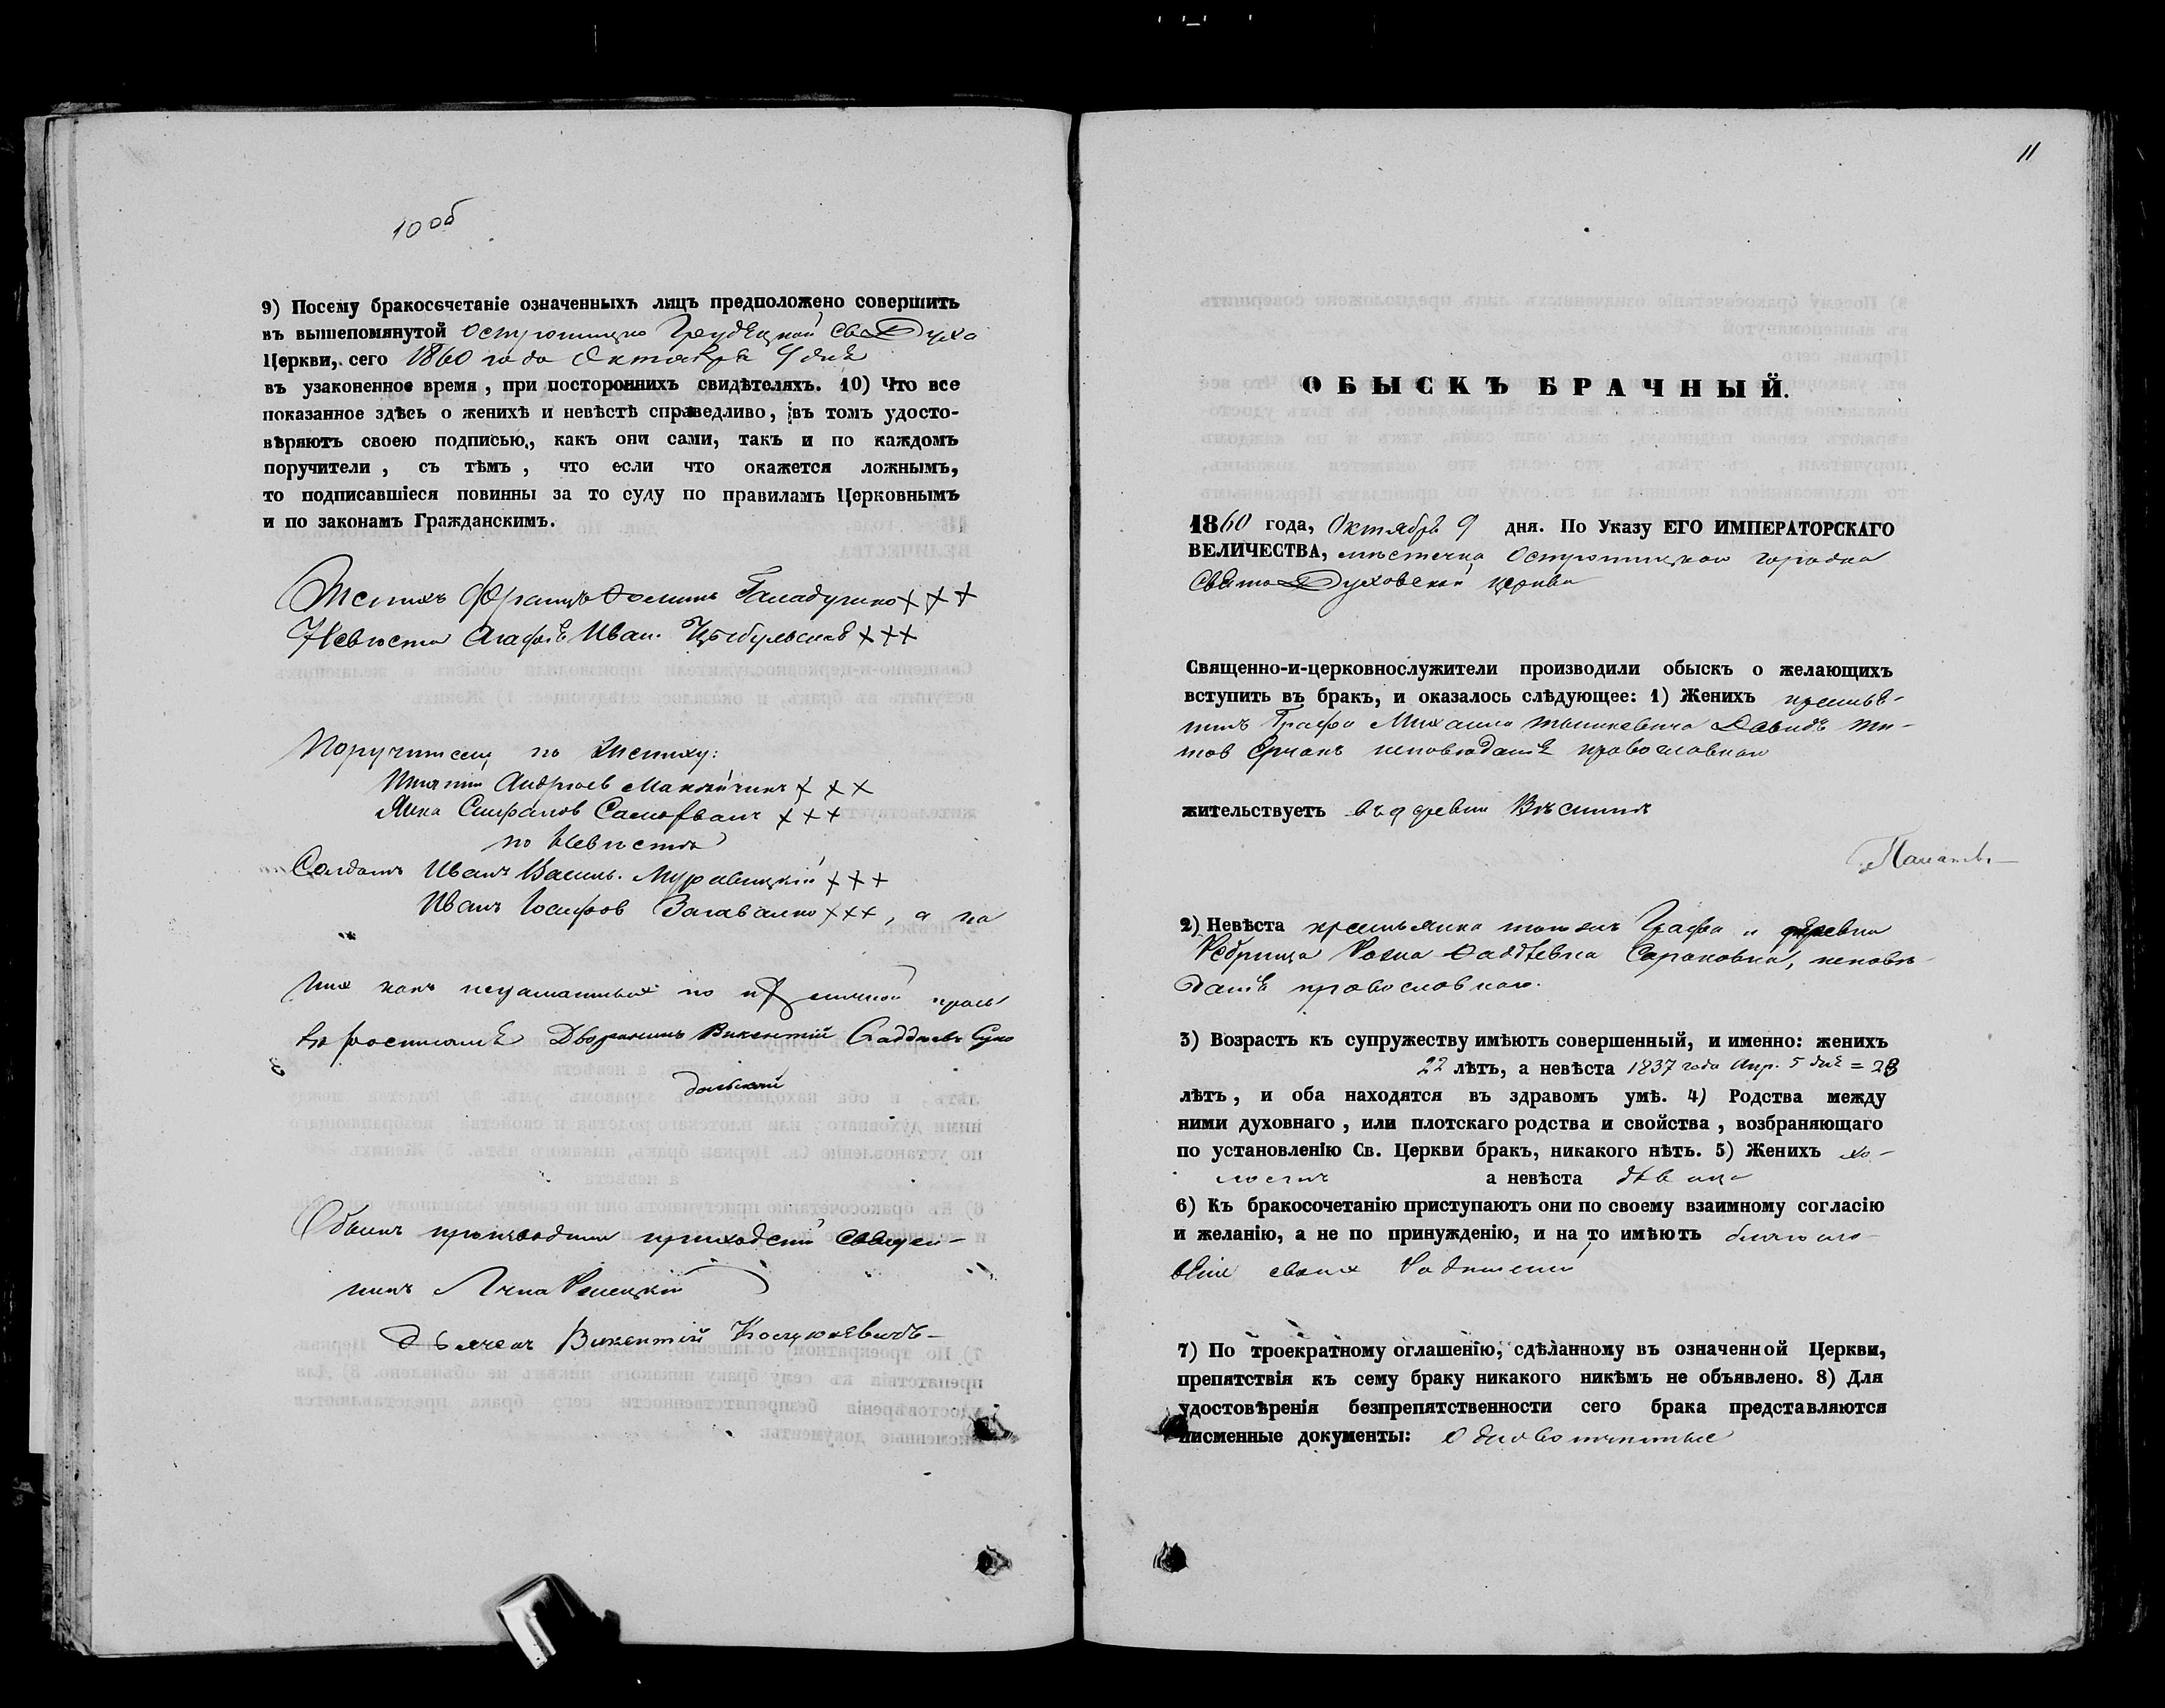 10 об
9) Посему бракосочетаніе означенныхъ лицъ предположено совершить
въ вышепомянутой Острошицко Св Духа
Церкви, сего 1860 года Октября 9 дня
въ узаконенное время, при постороннихъ свидѣтеляхъ. 10) Что все
показанное здѣсь о женихѣ и невѣстѣ справедливо, въ томъ удосто-
вѣряютъ своею подписью, какъ они сами, такъ и по каждомъ
поручители, съ тѣмъ, что если что окажется ложнымъ,
то подписавшіеся повинны за то суду по правиламъ Церковнымъ
и по законамъ Гражданскимъ.
Женихъ Францъ +++
Невѣста Агафія Иван. Цыбульская +++
Поручители по Жениху:
Андреев +++
Стефанов +++
по Невѣстѣ
Солдатъ Иванъ Василь. Муравицкій +++
Иванъ Іосифов +++, а за
них какъ неграмотных по их личной прозь
бѣ росписался Дворянинъ Викентій Фаддѣевъ Суко
дольскій
Обыскъ производили приходскій Священ-
никъ
дьячекъ Викентій
11
ОБЫСКЪ БРАЧНЫЙ.
1860 года, Октября 9 дня. По Указу ЕГО ИМПЕРАТОРСКАГО
ВЕЛИЧЕСТВА, мѣстечка Острошицкаго городка
Свято Духовской церкви
Священно-и-церковнослужители производили обыскъ о желающихъ
вступить въ бракъ, и оказалось слѣдующее: 1) Женихъ крестья-
нинъ Графа Михаила Тышкевича Давидъ Ти-
тов исповѣданія православнаго
жительствуетъ въ деревни
2) Невѣста крестьянка того же Графа и деревни
Фаддѣевна исповѣ-
данія православнаго.
3) Возрастъ къ супружеству имѣютъ совершенный, и именно: женихъ
22 лѣтъ, а невѣста 1837 года Апр. 5 дня = 23
лѣтъ, и оба находятся въ здравомъ умѣ. 4) Родства между
ними духовнаго, или плотскаго родства и свойства, возбраняющаго
по установленію Св. Церкви бракъ, никакого нѣтъ. 5) Женихъ хо-
лостъ а невѣста дѣвица
6) Къ бракосочетанію приступаютъ они по своему взаимному согласію
и желанію, а не по принужденію, и на то имѣютъ благосло-
веніе своихъ Родителей
7) По троекратному оглашенію, сдѣланному въ означенной Церкви,
препятствія къ сему браку никакого никѣмъ не объявлено. 8) Для
удостовѣренія безпрепятственности сего брака представляются
писменные документы: